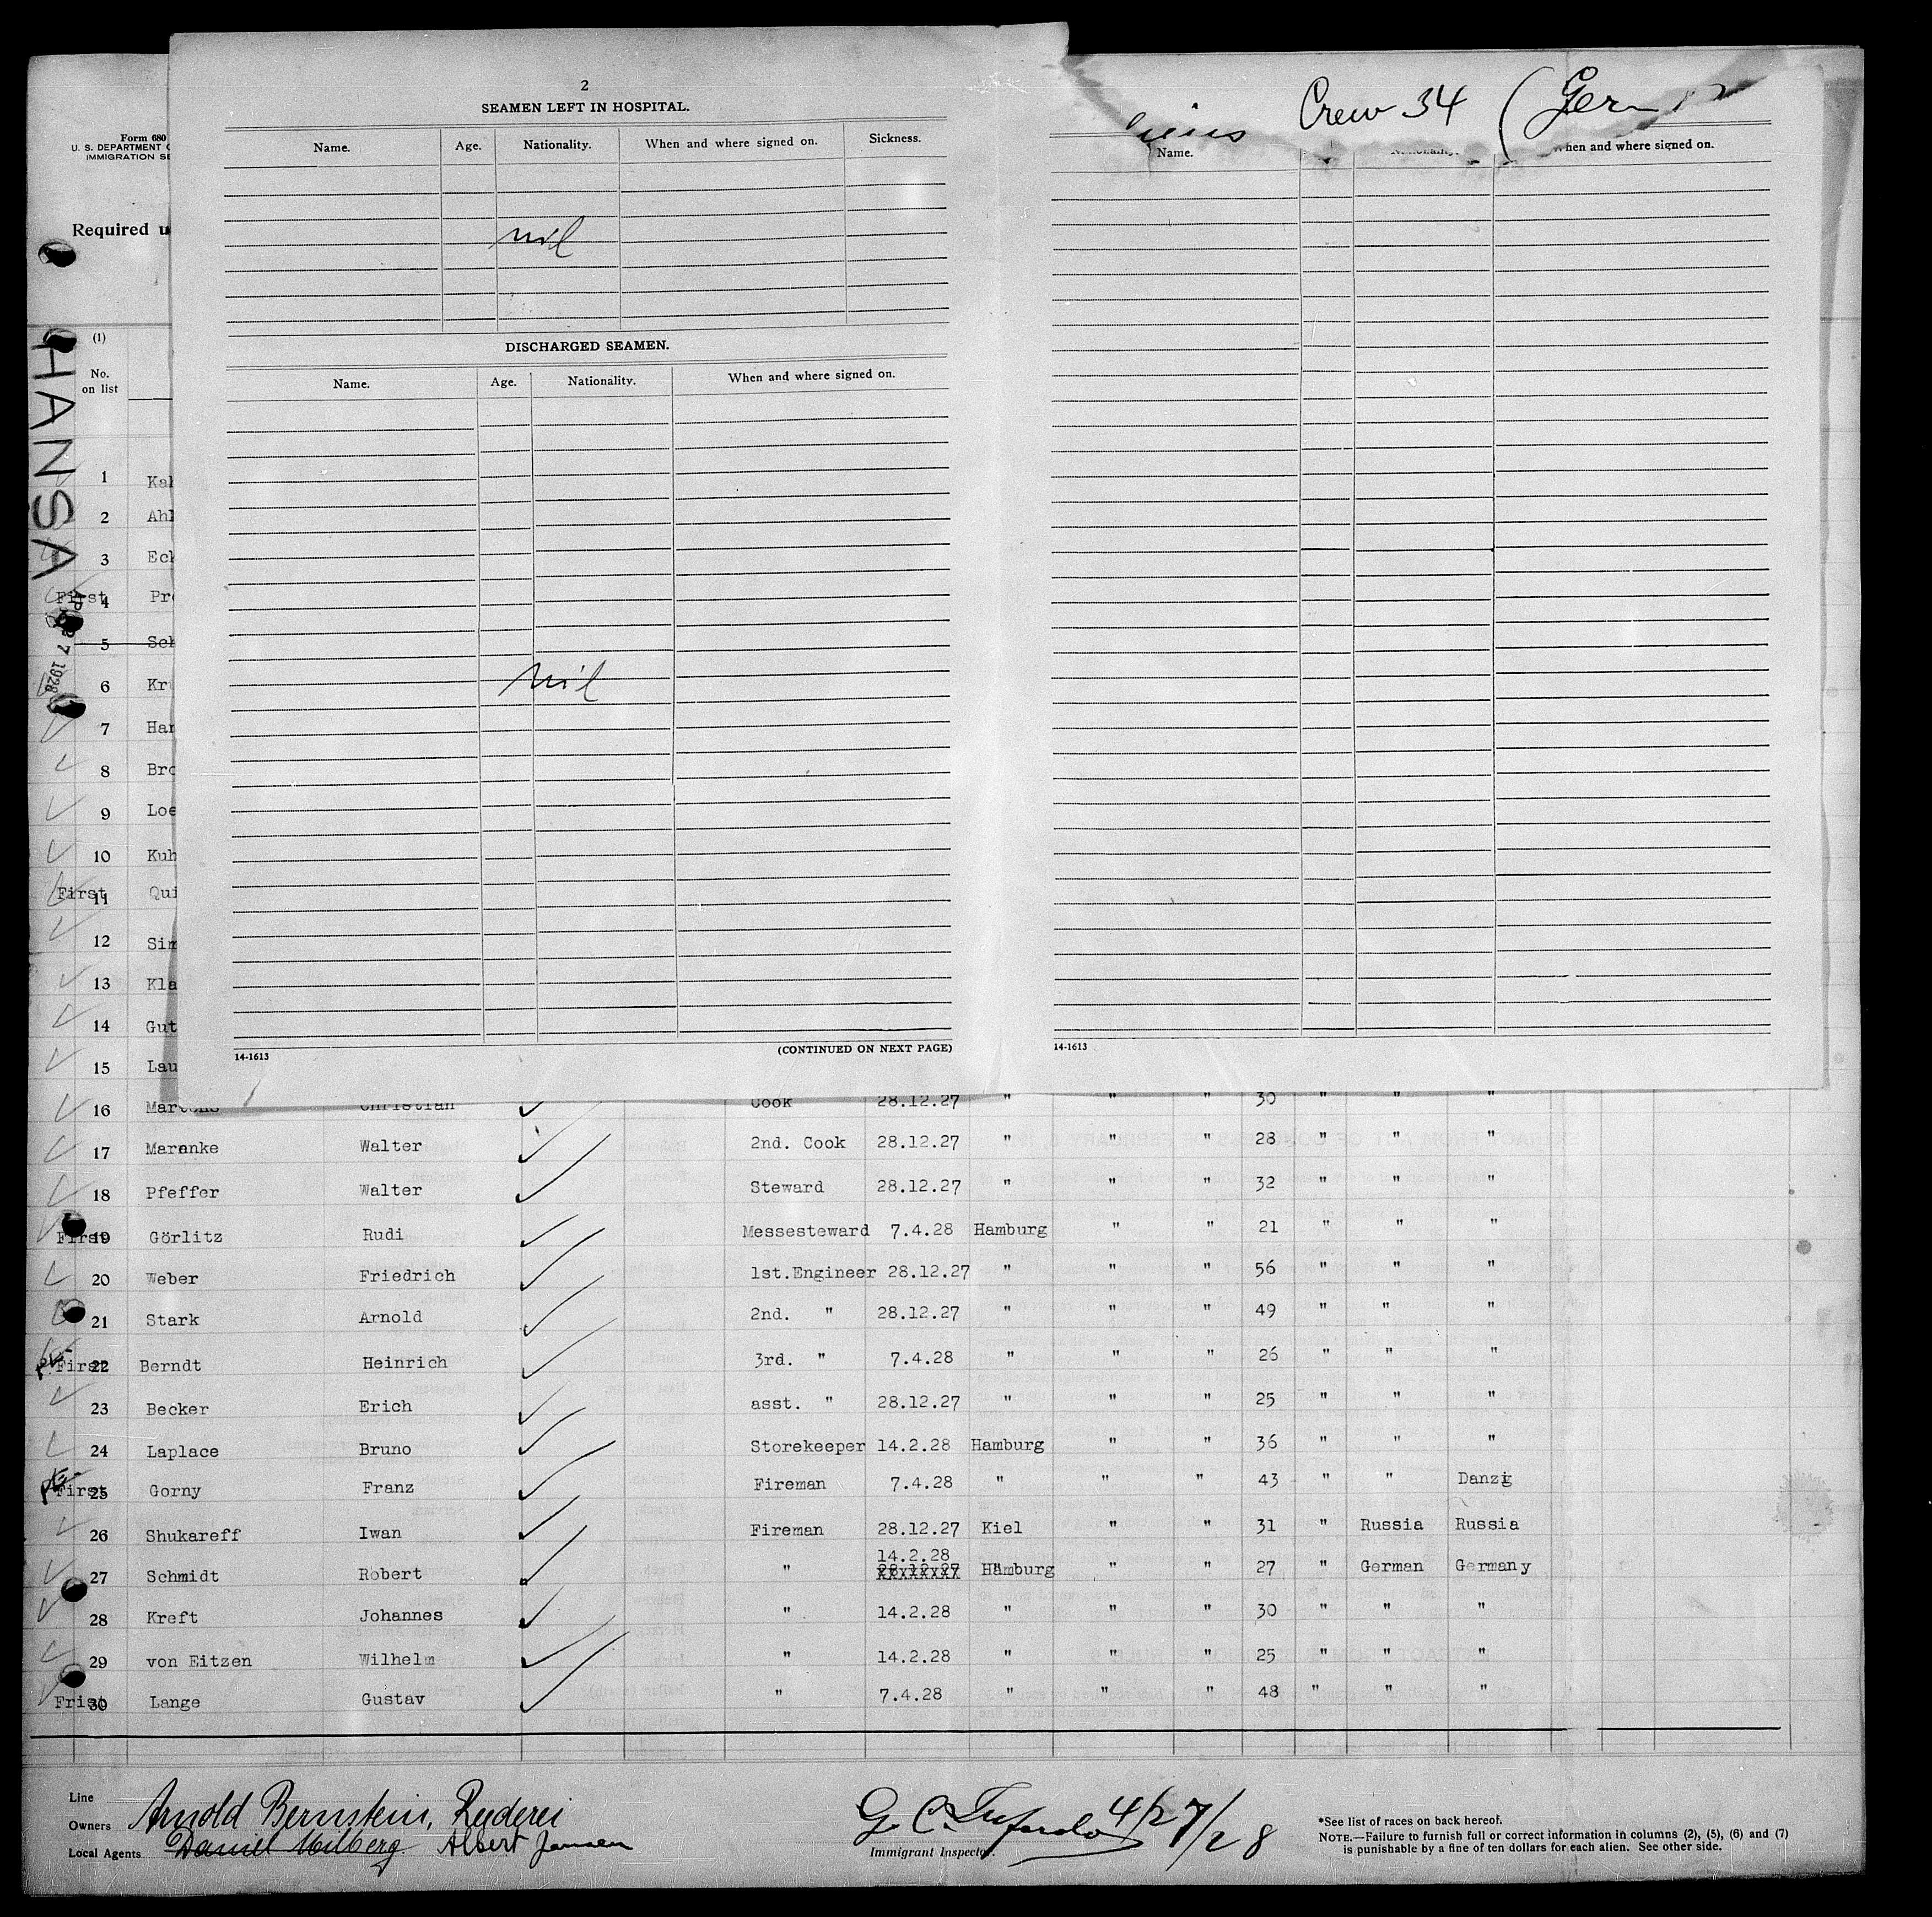 2
SEAMEN LEFT IN HOSPITAL.
Name. Age. Nationality. When and where signed on. Sickness.
nil
DISCHARGED SEAMEN.
Name. Age. Nationality. When and where signed on.
nil
14-1613 (CONTINUED ON NEXT PAGE)
Crew 34
Name. When and where signed on.
14-1613
Form 680
U. S. DEPARTMENT
IMMIGRATION
Required
HANSA
(1)
No.
on list
1 Kah
2 Ahl
3 Eck
First 4 Pro
5 Sch
6 Kr
7 Han
8 Bro
9 Loe
10 Kuh
First 11 Qui
12 Sim
13 Kla
14 Gut
15 Lau
16 Martens Christian Cook 28.12.27 " " " 30 " " "
17 Maranke Walter 2nd. Cook 28.12.27 " " " 28 " " "
18 Pfeffer Walter Steward 28.12.27 " " " 32 " " "
First 19 Görlitz Rudi Messesteward 7.4.28 Hamburg " " 21 " " "
20 Weber Friedrich 1st.Engineer 28.12.27 " " " 56 " " "
21 Stark Arnold 2nd. " 28.12.27 " " " 49 " " "
First 22 Berndt Heinrich 3rd. " 7.4.28 " " " 26 " " "
23 Becker Erich asst. " 28.12.27 " " " 25 " " "
24 Laplace Bruno Storekeeper 14.2.28 Hamburg " " 36 " " "
First 25 Gorny Franz Fireman 7.4.28 " " " 43 " " Danzig
26 Shukareff Iwan Fireman 28.12.27 Kiel " " 31 " Russia Russia
14.2.28
27 Schmidt Robert " 28.12.27 Hamburg " " 27 " German Germany
28 Kreft Johannes " 14.2.28 " " " 30 " " "
29 von Eitzen Wilhelm " 14.2.28 " " " 25 " " "
Frist 30 Lange Gustav " 7.4.28 " " " 48 " " "
Line
Owners Arnold Bernstein, Reederei
Local Agents Daniel Milberg Albert Jansen
4/27/28
Immigrant Inspector.
*See list of races on back hereof.
NOTE.—Failure to furnish full or correct information in columns (2), (5), (6) and (7)
is punishable by a fine of ten dollars for each alien. See other side.